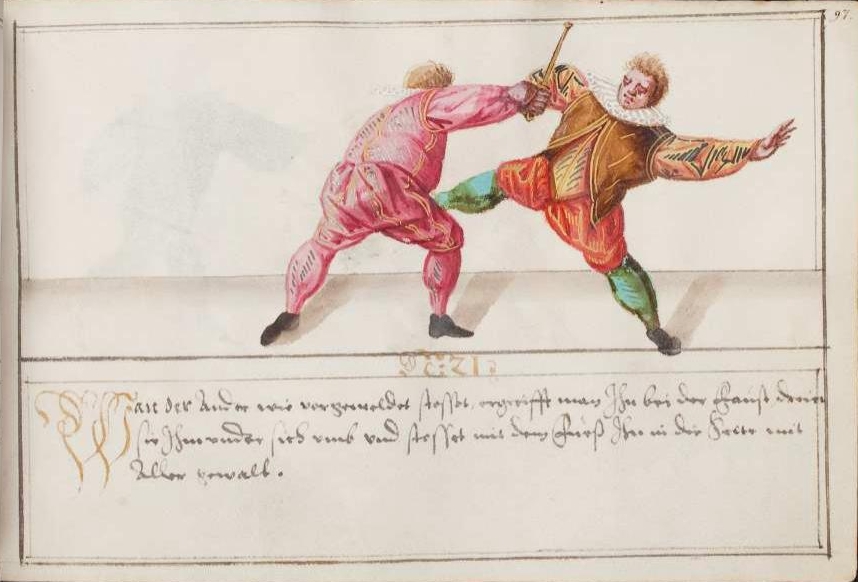 97.
N: 21
Wan der Ander wie vorgemeldet stosset, ergreifft man Ihn bei der Faust,
sie Ihm under sich umb und stosset mit dem Fueß Ihn in die Seite mit
Aller gewalt.